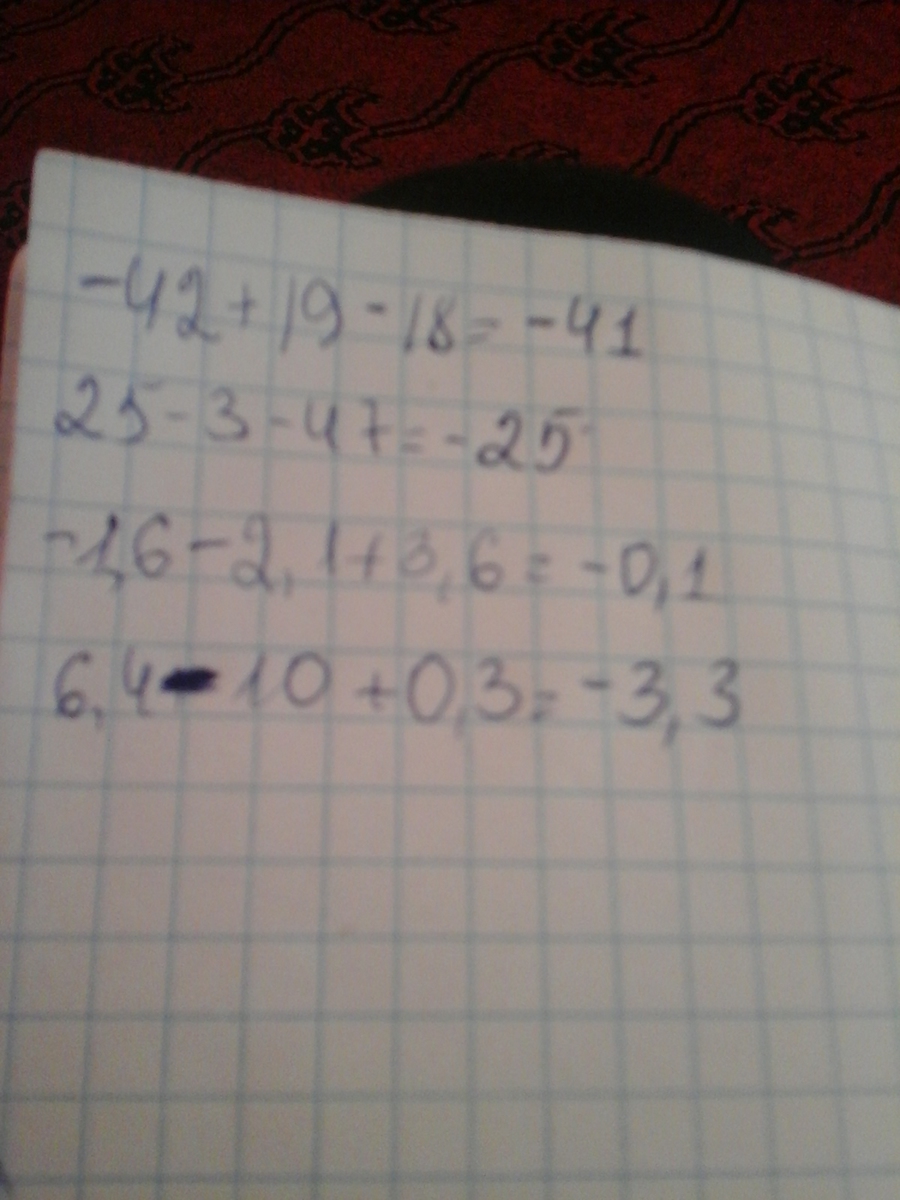 -42+19-18=-41
25-3-47=-25
-1,6-2,1+3,6=-0,1
6,4-10+0,3=-3,3